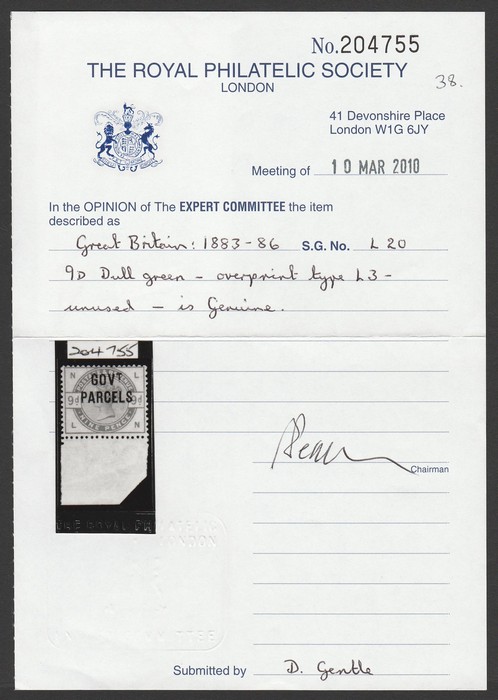 No.204755
THE ROYAL PHILATELIC SOCIETY
LONDON
38.
41 Devonshire Place
London W1G 6JY
Meeting of 10 MAR 2010
In the OPINION of The EXPERT COMMITTEE the item
described as
Great Britain: 1883-86 S.G. No. L20
9D Dull green - overprint type L3 -
unused - is Genuine.
204755
N L
GOVT
9d PARCELS 9d
NINE PENCE
L N
Chairman
THE ROYAL PHILATELIC
LONDON
Submitted by D. Gentle